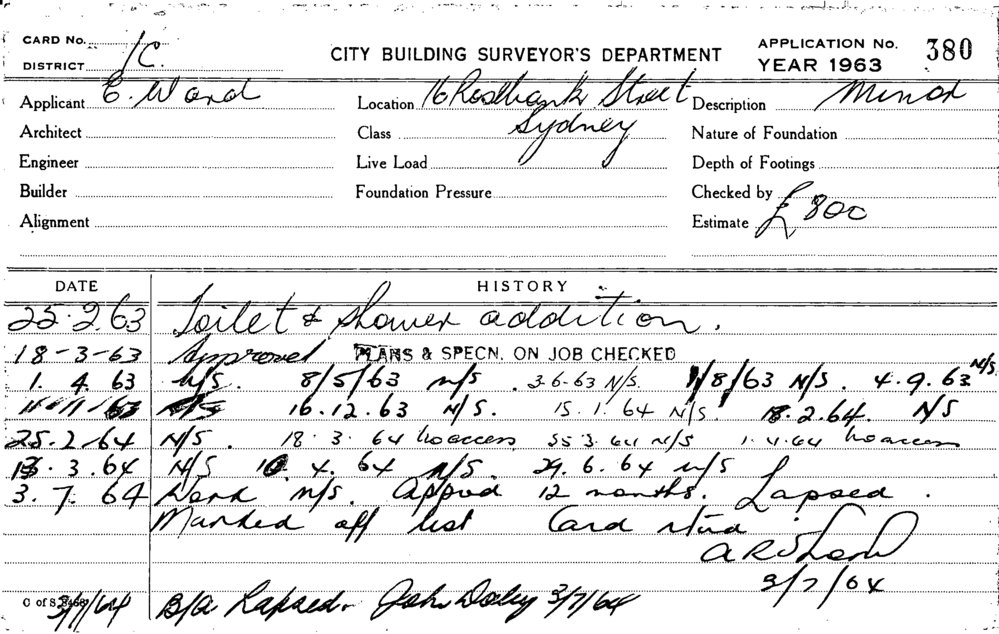 CARD No.
DISTRICT 1C.
CITY BUILDING SURVEYOR'S DEPARTMENT
APPLICATION No. 380
YEAR 1963
Applicant E. Ward Location 16 Rosebank Street Description Minor
Sydney
Architect Class Nature of Foundation
Engineer Live Load Depth of Footings
Builder Foundation Pressure Checked by
Alignment Estimate £800
DATE HISTORY
25.2.63 Toilet & shower addition.
18-3-63 Approved PLANS & SPECN. ON JOB CHECKED
1. 4. 63 N/S. 8/5/63 N/S. 3-6-63 N/S. 1/8/63 N/S. 4.9.63 N/S.
N/S 16.12.63 N/S. 15.1.64 N/S 18.2.64. N/S
25.2.64 N/S. 18.3.64 No access 25.3.64 N/S 1.4.64 No access
3.64 N/S 10.4.64 N/S. 29.6.64 N/S
3.7.64 Work N/S. Approd 12 months. Lapsed.
Marked off list Card
3/7/64
C of S 3/7/64 B/A Lapsed. John 3/7/64